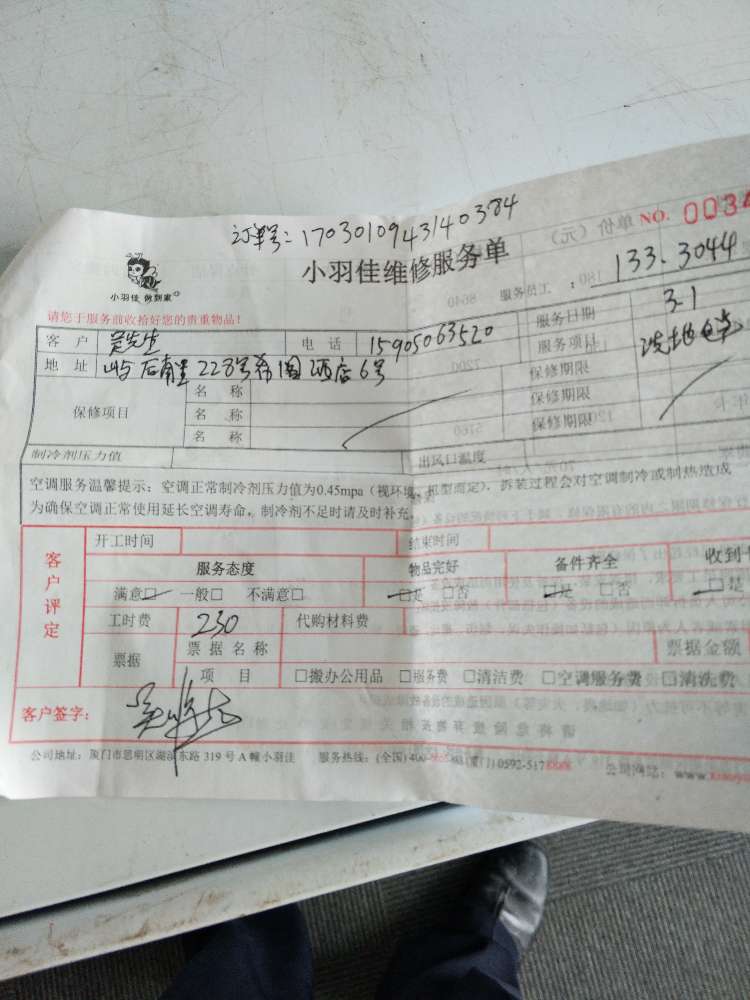 订单号：1703010943140384
NO. 0034
小羽佳维修服务单
小羽佳 做到家
服务员工： 133. 3044
请您于服务前收拾好您的贵重物品！
客 户 先生 电 话 15905063520 服务日期 3.1
地 址 后埔里 228号 酒店 6号 服务项目 洗地
保修项目 名 称 保修期限
名 称 保修期限
名 称 保修期限
制冷剂压力值 出风口温度
空调服务温馨提示：空调正常制冷剂压力值为0.45mpa（视环境、机型而定），拆装过程会对空调制冷或制热造成
为确保空调正常使用延长空调寿命，制冷剂不足时请及时补充。
客户评定
开工时间 结束时间
服务态度 物品完好 备件齐全 收到
满意□ 一般□ 不满意□ □是 □否 □是 □否 □是
工时费 230 代购材料费
票据 票据名称 票据金额
项 目 □搬办公用品 □服务费 □清洁费 □空调服务费 □清洗费
客户签字：
公司地址：厦门市思明区湖滨东路 319 号 A 幢小羽佳 服务热线：(全国) 400- (厦门) 0592-5178888 公司网站：www.